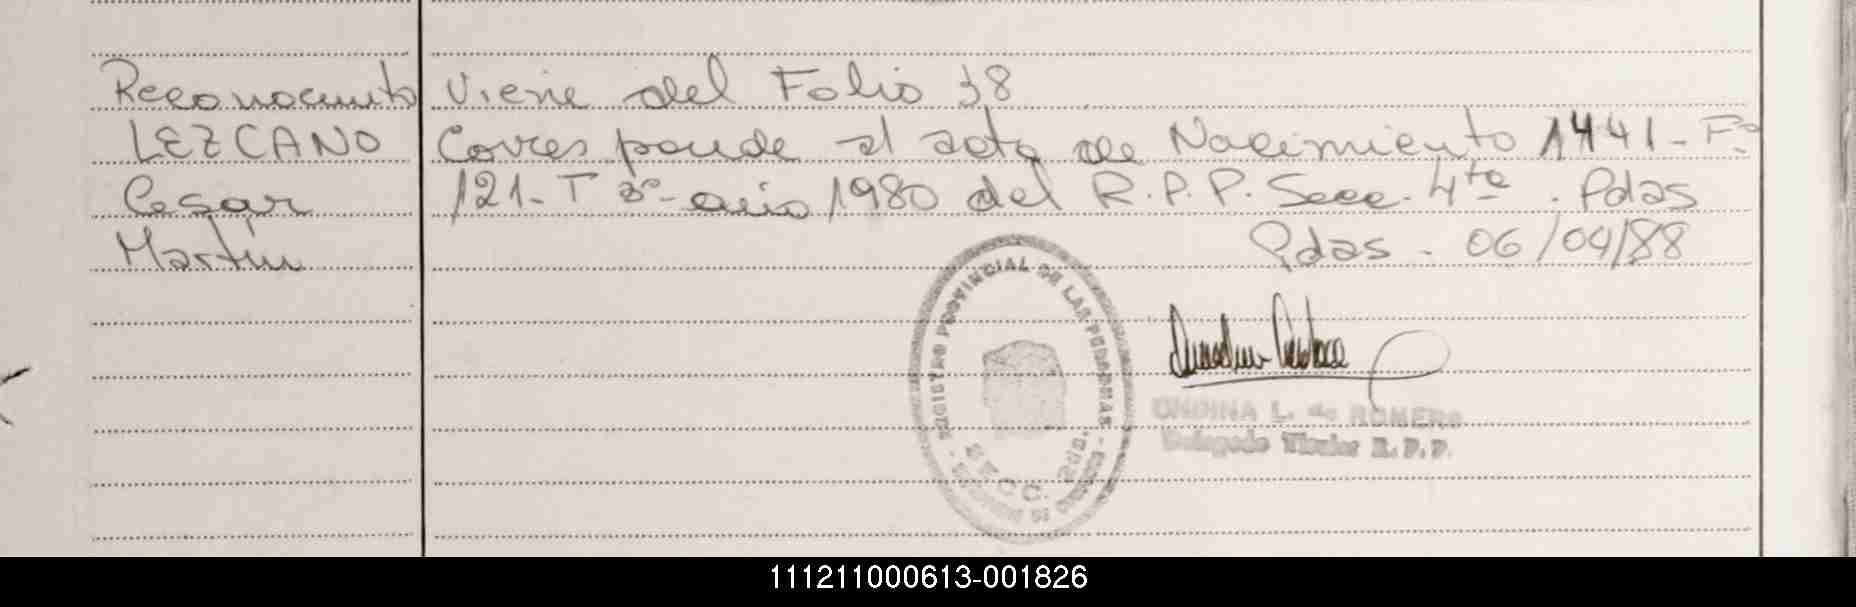 Reconocimto Viene del Folio 38
LEZCANO Corresponde al acta de Nacimiento 1441 - Fº
Cesar 121 - T 3º - año 1980 del R.P.P. Secc. 4ta. Pdas
Martin Pdas - 06/04/88
REGISTRO PROVINCIAL DE LAS PERSONAS
SECC.
ONDINA L. de ROMERO
Delegado Titular R.P.P.
111211000613-001826